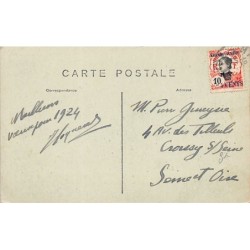 CARTE POSTALE
Correspondance
Meilleurs
vœux pour 1924
M. Pierre
4 Av. des Tilleuls
Croissy s/Seine
Seine et Oise
10
CENTS